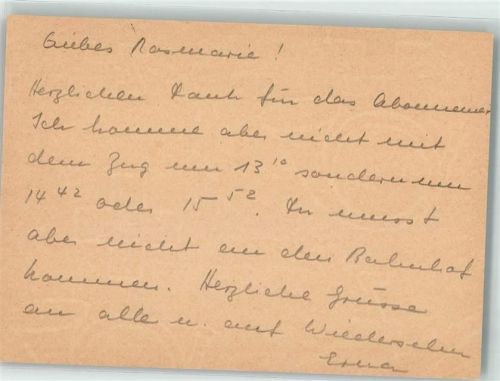 Liebes Rosmarie!
Herzlichen Dank für das Abonnement
Ich komme aber nicht mit
dem Zug um 13¹⁰ sondern um
14⁴² oder 15⁵². Du musst
aber nicht an den Bahnhof
kommen. Herzliche Grüsse
an alle u. auf Wiedersehn
Erna